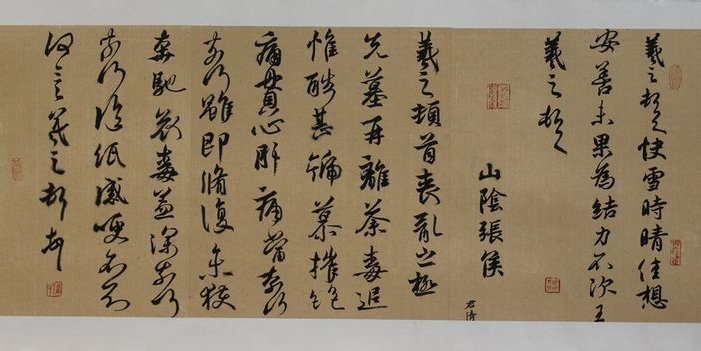 羲之頓首快雪時晴佳想
安善未果為結力不次王
羲之頓首
山陰張侯
羲之頓首喪亂之極
先墓再離荼毒追
惟酷甚號慕摧絕
痛貫心肝痛當奈何
奈何雖即脩復未獲
奔馳哀毒益深奈何
奈何臨紙感哽不知
何言羲之頓首頓首